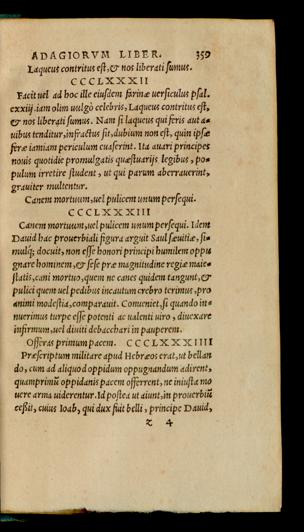 ADAGIORVM LIBER. 359
Laqueus contritus est, & nos liberati sumus.
CCCLXXXII
Facit uel ad hoc ille eiusdem farinæ uersiculus psal.
cxxiij. iam olim uulgò celebris, Laqueus contritus est,
& nos liberati sumus. Nam si laqueus qui feris aut a-
uibus tenditur, infractus sit, dubium non est, quin ipsæ
feræ iamiam periculum euaserint. Ita auari principes
nouis quotidie promulgatis quæstuarijs legibus, po-
pulum irretire student, ut qui parum aberrauerint,
grauiter multentur.
Canem mortuum, uel pulicem unum persequi.
CCCLXXXIII
Canem mortuum, uel pulicem unum persequi. Idem
Dauid hac prouerbiali figura arguit Saul sæuitiæ, si-
mulq́; docuit, non esse honori principi humilem oppu
gnare hominem, & sese præ magnitudine regiæ maie-
statis, cani mortuo, quem ne canes quidem tangunt, &
pulici quem uel pedibus incautum crebro terimus, pro
animi modestia, comparauit. Conueniet, si quando in-
nuerimus turpe esse potenti ac ualenti uiro, diuexare
infirmum, uel diuiti debacchari in pauperem.
Offeras primum pacem. CCCLXXXIIII
Præscriptum militare apud Hebræos erat, ut bellan
do, cum ad aliquod oppidum oppugnandum adirent,
quamprimũ oppidanis pacem offerrent, ne iniusta mo
uere arma uiderentur. Id postea ut aiunt, in prouerbiũ
cessit, cuius Ioab, qui dux fuit belli, principe Dauid,
z 4